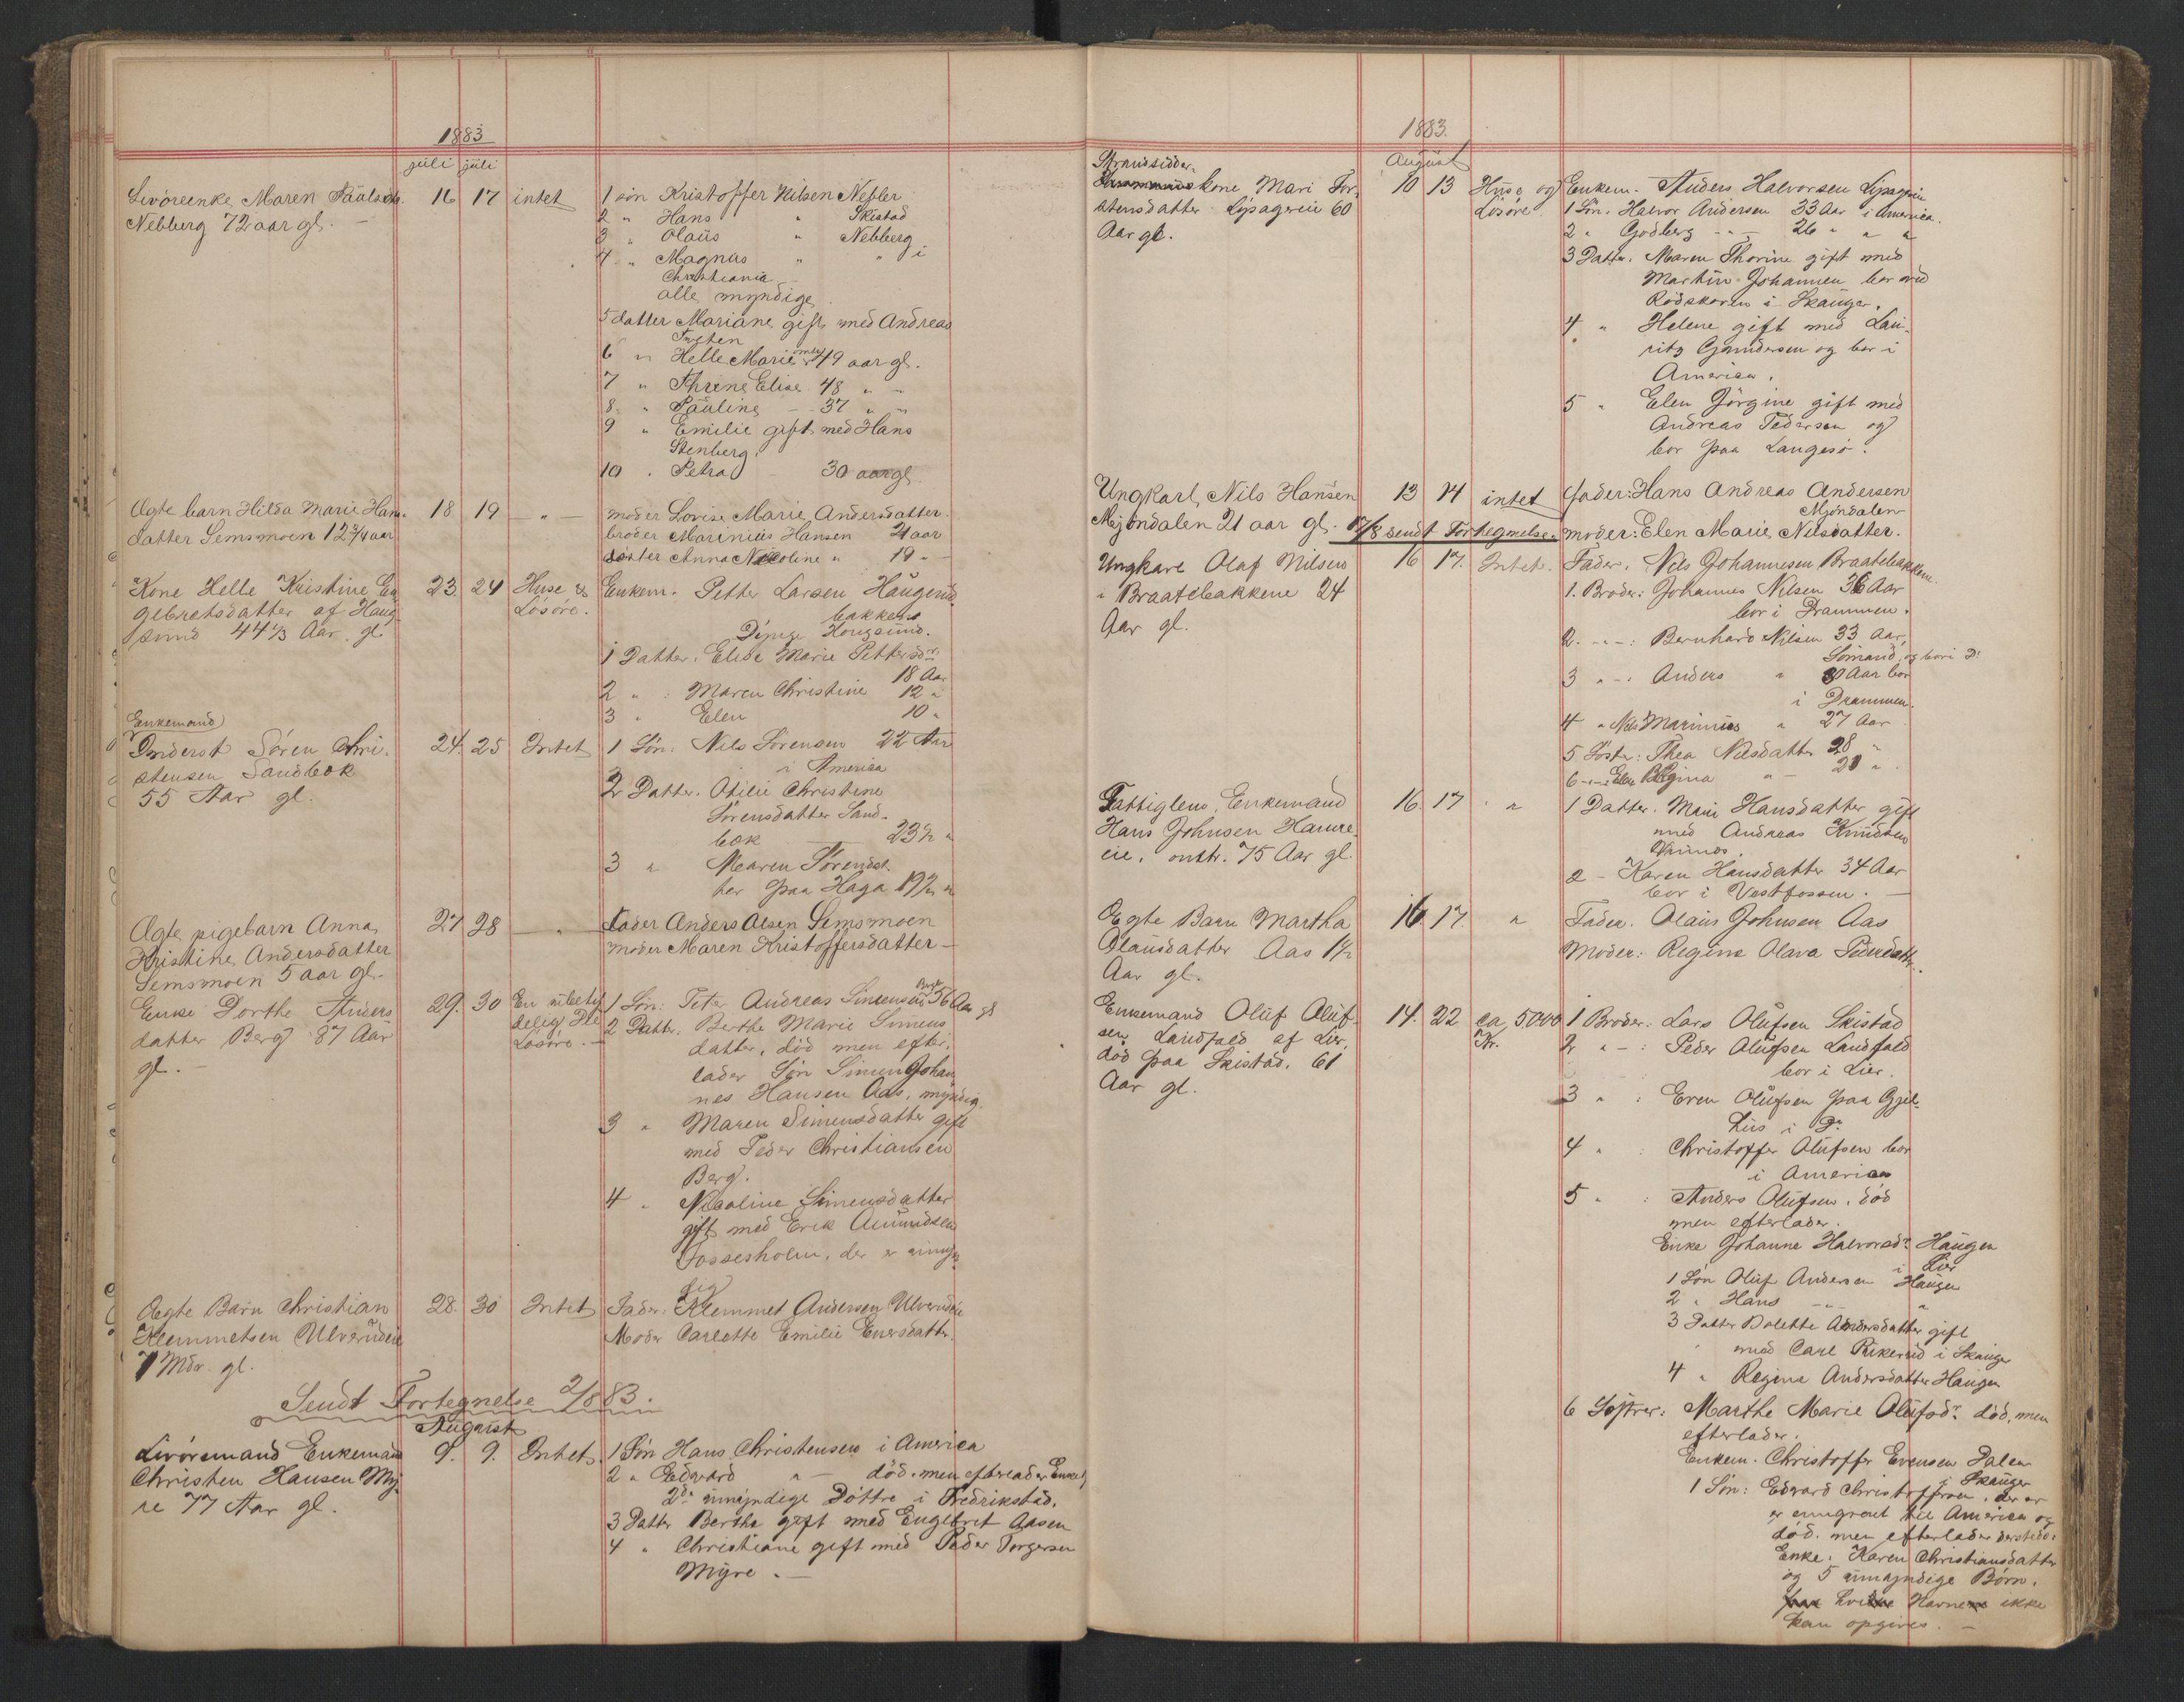 1883
juli juli
Livöreenke Maren Paulsdtr. 16 17 intet 1 sön Kristoffer Nilsen Nebler
Nebberg 72 aar gl. — 2 " Hans " Skistad
3 " Olaus " Nebberg
4 " Magnus " " i
Christiania
alle myndige
5 datter Mariane gift med Andreas
Tveten
6 " Helle Marie 49 aar gl.
7 " Thrine Elise 48 " "
8 " Pauline — 37 " "
9 " Emilie gift med Hans
Stenberg.
10 " Petra — 30 aar gl.
Ægte barn Hilda Marie Hans- 18 19 — " — moder Lovise Marie Andersdatter.
datter Semsmoen 12 3/4 aar broder Marinius Hansen 21 aar
söster Anna Nicoline " 19 -
Kone Helle Kristine En- 23 24 Huse & Enkem. Petter Larsen Haugsund
gebretsdatter af Haug- Lösöre. bakken
sund 44 1/3 Aar gl. Haugsund.
1 Datter. Elise Marie Pettersdr.
18 Aar
2 " : Maren Christine 12 "
3 " Elen 10 "
Enkemand
Inderst Sören Chri- 24. 25 Intet 1 Sön: Nils Sörensen 22 Aar
stensen Sandbæk i America
55 Aar gl. 2 Datter. Otilie Christine
Sörensdatter Sand-
bæk — 23 1/2 "
3 " Maren Sörensdt.
her paa Haga 19 1/2 "
Ægte pigebarn Anna 27 28 — " — Fader Anders Olsen Semsmoen
Kristine Andersdatter moder Maren Kristoffersdatter —
Semsmoen 5 aar gl.
Enke Dorthe Anders- 29. 30 En ubety- 1 Sön: Peter Andreas Simensen Berg 56 Aar gl
datter Berg 87 Aar delig Del 2 Dattr. Berthe Marie Simens-
gl. — Lösöre. — datter, död men efter-
lader Sön Simen Johan-
nes Hansen Aas, myndig.
3 " Maren Simensdatter gift
med Peder Christiansen
Berg.
4 " Nicoline Simensdatter
gift med Erik Amundsen
Fossesholm, der er myn-
dig
Ægte Barn Christian 28. 30 Intet Fader: Klemmet Andersen Ulverudeie
Klemmetsen Ulverudeie Moder Carlotte Emilie Eversdatter.
7 Mdr. gl.
Sendt Fortegnelse 2/8 83.
August
Livöremand Enkemand 9. 9. Intet. 1 Sön Hans Christensen i America
Christen Hansen My- 2 " Edvard " — död. men efterlader Enke &
re 77 Aar gl. 2de umyndige Döttre i Fredrikstad.
3 Datter Berthe gift med Engebret Aasen
4 " Christiane gift med Peder Torgersen
Myre. —
1883.
August
Strandsidder-
kone Mari Tor- 10 13 Huse og Enkem. Anders Halvorsen Lysageie
stensdatter Lysagereie 60 Lösöre. 1 Sön. Halvor Andersen 33 Aar i America.
Aar gl. 2 " Godberg - " - 26 " " "
3 Datter. Maren Thorine gift med
Martin Johannen bor ved
Rödskoren i Skauger.
4 " Helene gift med Lau-
ritz Gundersen og bor i
America.
5 " Elen Jörgine gift med
Andreas Pedersen og
bor paa Langesö.
Ungkarl Nils Hansen 13 14 intet fader: Hans Andreas Andersen
Mjöndalen
Mjöndalen 21 aar gl. 17/8 sendt Fortegnelse. moder: Elen Marie Nilsdatter.
Ungkarl Olaf Nilsen 16 17. Intet. Fader. Nils Johannesen Braatebakken.
i Braatebakkene 24 1. Broder: Johannes Nilsen 36 Aar
Aar gl. bor i Drammen.
2. - " - : Bernhard Nilsen 33 Aar,
Sömand og bor i Dr
3 " - : Anders " 30 Aar bor
i Drammen.
4 " Nils Marinius " 27 Aar
5 Söster: Thea Nilsdatter 28 "
6 - " - : Elen Regina " - 21 "
Fattiglem, Enkemand 16. 17 " " 1 Datter. Mari Hansdatter gift
Hans Johnsen Harme- med Andreas Knudsen
eie, omtr. 75 Aar gl.
2 - Karen Hansdatter 34 Aar
bor i Vestfossen. —
Ægte Barn Martha 16 17. " Fader. Olaus Johnsen Aas
Olausdatter Aas 1 1/2 Moder: Regine Olava Pedersdtr.
Aar gl.
Enkemand Oluf Oluf- 14. 22 ca 5,000 1 Broder: Lars Olufsen Skistad
sen Landfald af Lier, Kr. 2 " - : Peder Olufsen Landfald
död paa Skistad, 61 bor i Lier.
Aar gl. 3 " : Even Olufsen paa Gjel-
hus i Dr
4 " : Christoffer Olufsen bor
i America
5 " : Anders Olufsen. död
men efterlader.
Enke Johanne Halvorsdr. Haugen
i Lier
1 Sön Oluf Andersen Haugen
2 " Hans - " - "
3 Datter Dolette Andersdatter gift
med Carl Rukerud i Skauger
4 " Regine Andersdatter Haugen
6 Söstrer: Marthe Marie Olufsdr. död, men
efterlader.
Enkem. Christoffer Evensen Dalen
i Skauger
1 Sön: Edvard Christoffersen, der er
er emigreret til America og
död. men efterlader dersteds
Enke. Karen Christiansdatter
og 5 umyndige Börn.
hvilke Navne ikke
kan opgives. —